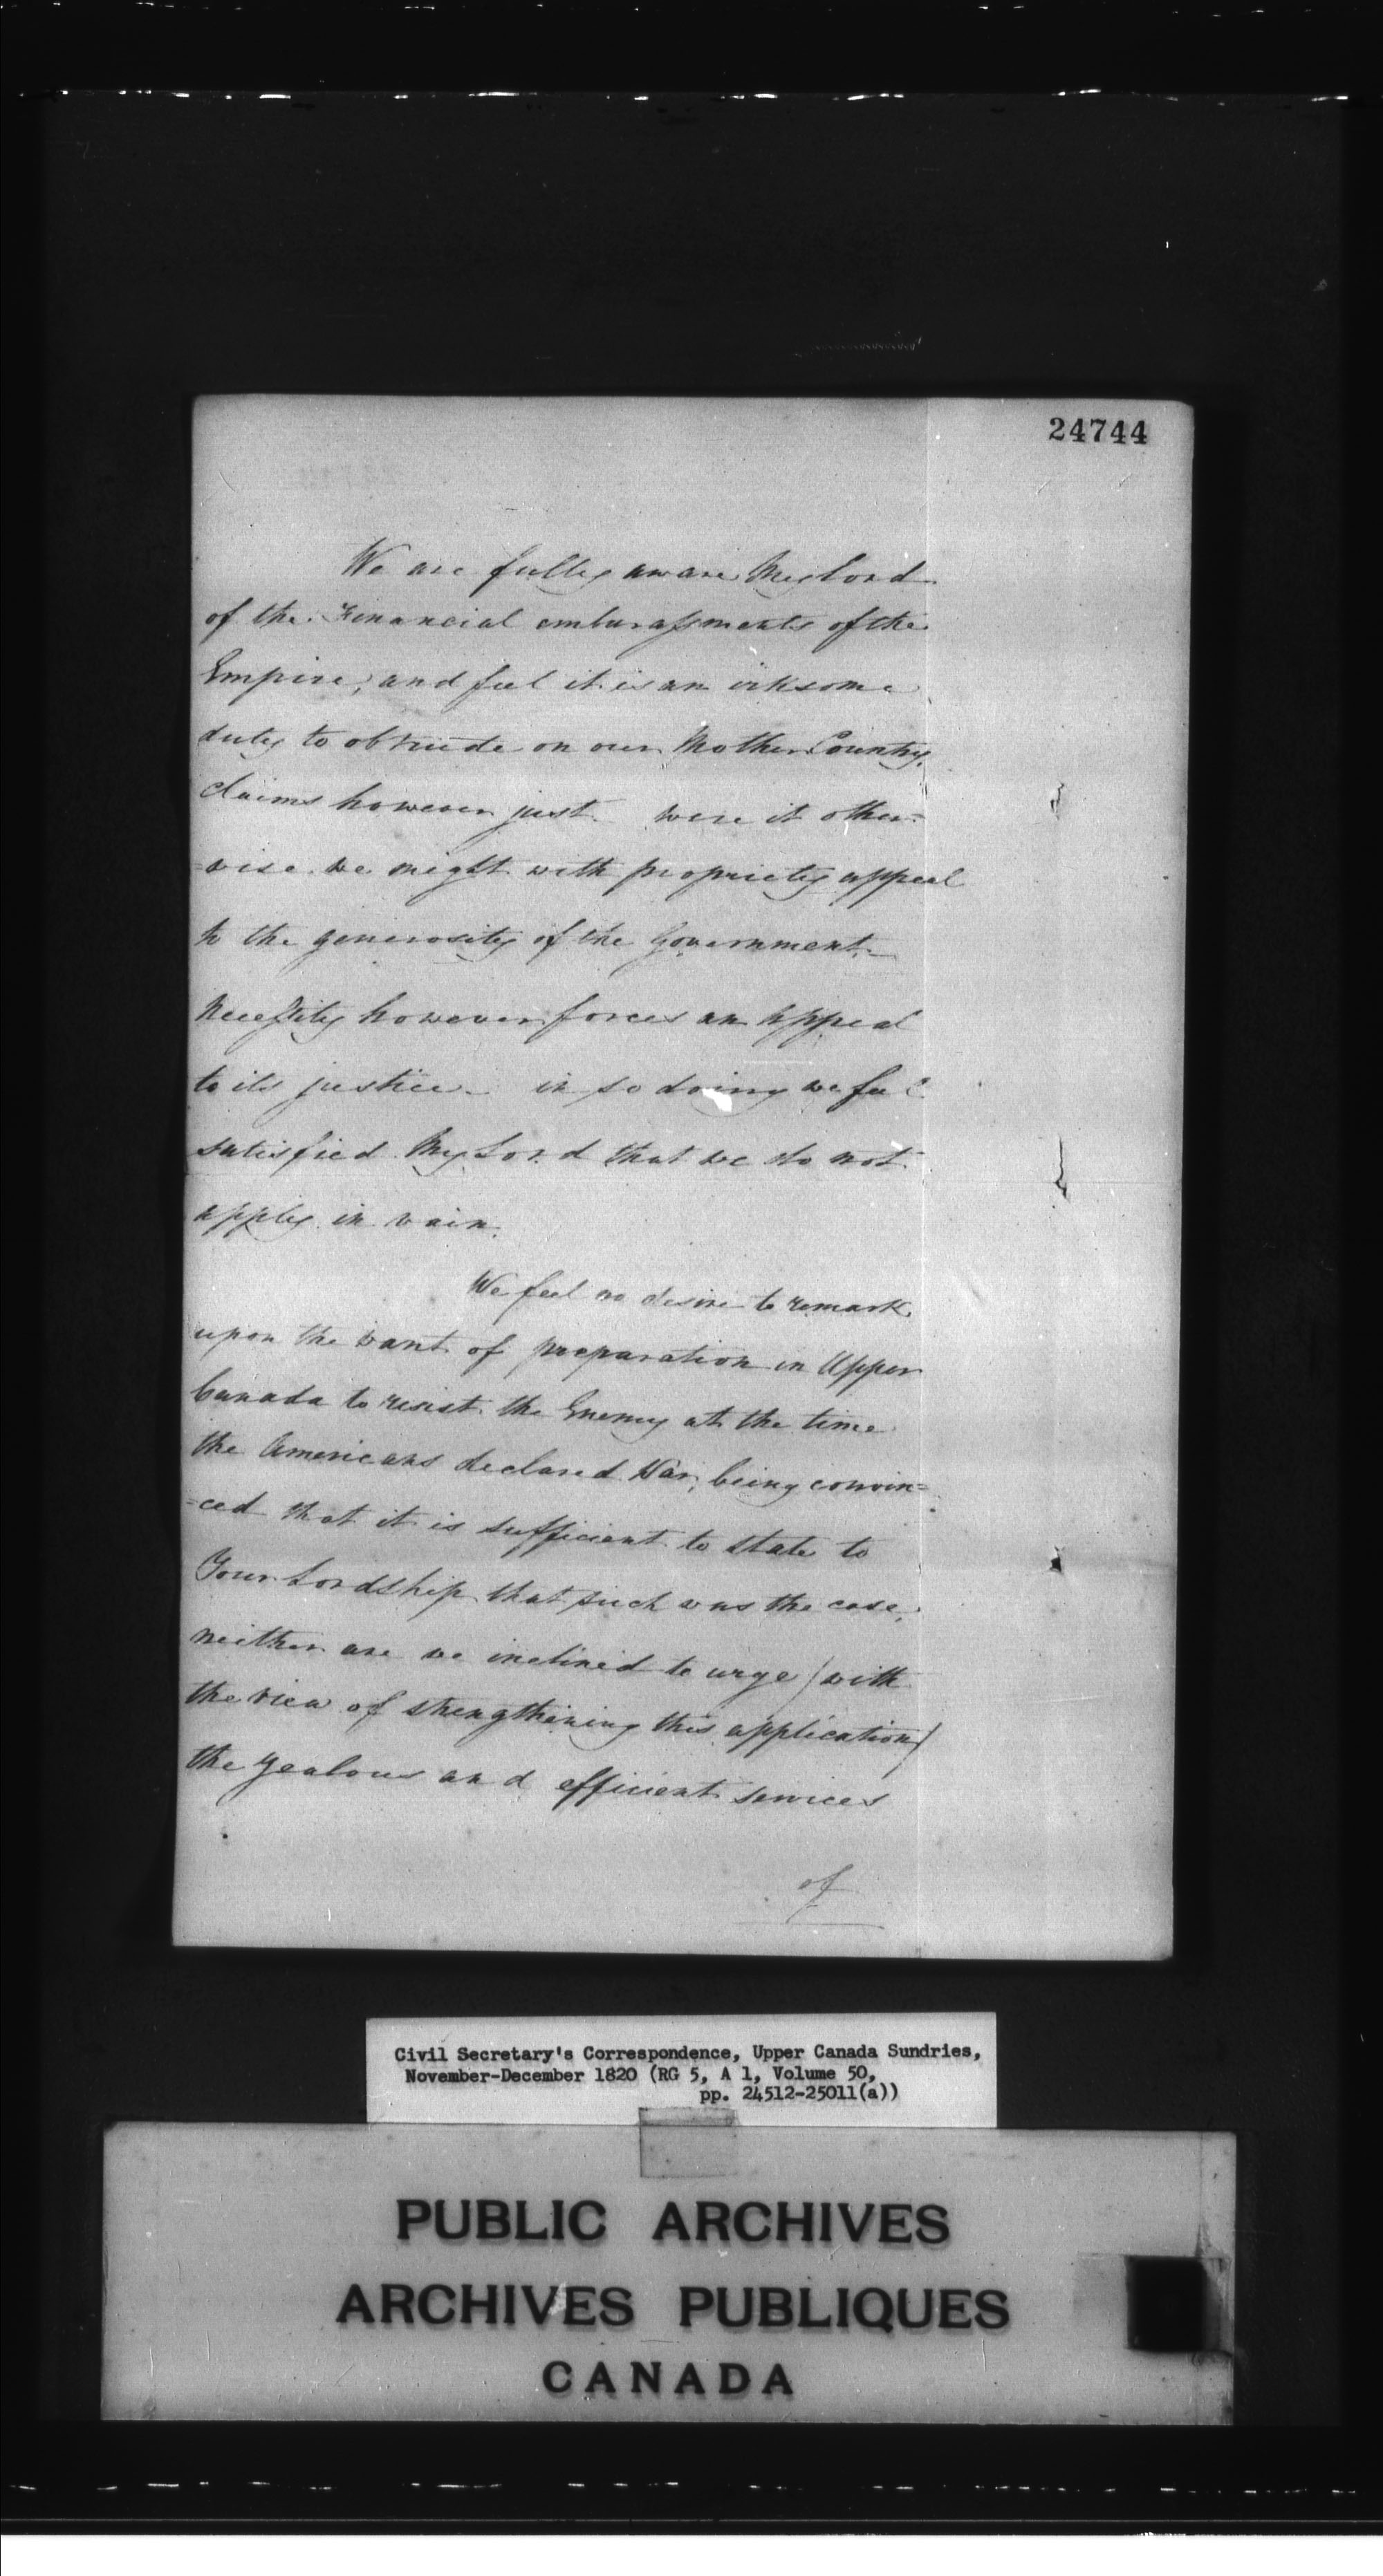 24744
We are fully aware My Lord
of the Financial embarassments of the
Empire, and feel it is an irksome
duty to obtrude on our Mother Country,
claims however just. were it other=
=wise we might with propriety appeal
to the generosity of the Government.
Necessity however forces an Appeal
to its justice. in so doing we feel
satisfied My Lord that we do not
apply in vain.
We feel no desire to remark
upon the want of preparation in Upper
Canada to resist the Enemy at the time
the Americans declared War, being convin=
=ced that it is sufficient to state to
Your Lordship that such was the case,
neither are we inclined to urge (with
the view of strengthening this application)
the zealous and efficient services
of
Civil Secretary's Correspondence, Upper Canada Sundries,
November-December 1820 (RG 5, A 1, Volume 50,
pp. 24512-25011(a))
PUBLIC ARCHIVES
ARCHIVES PUBLIQUES
CANADA